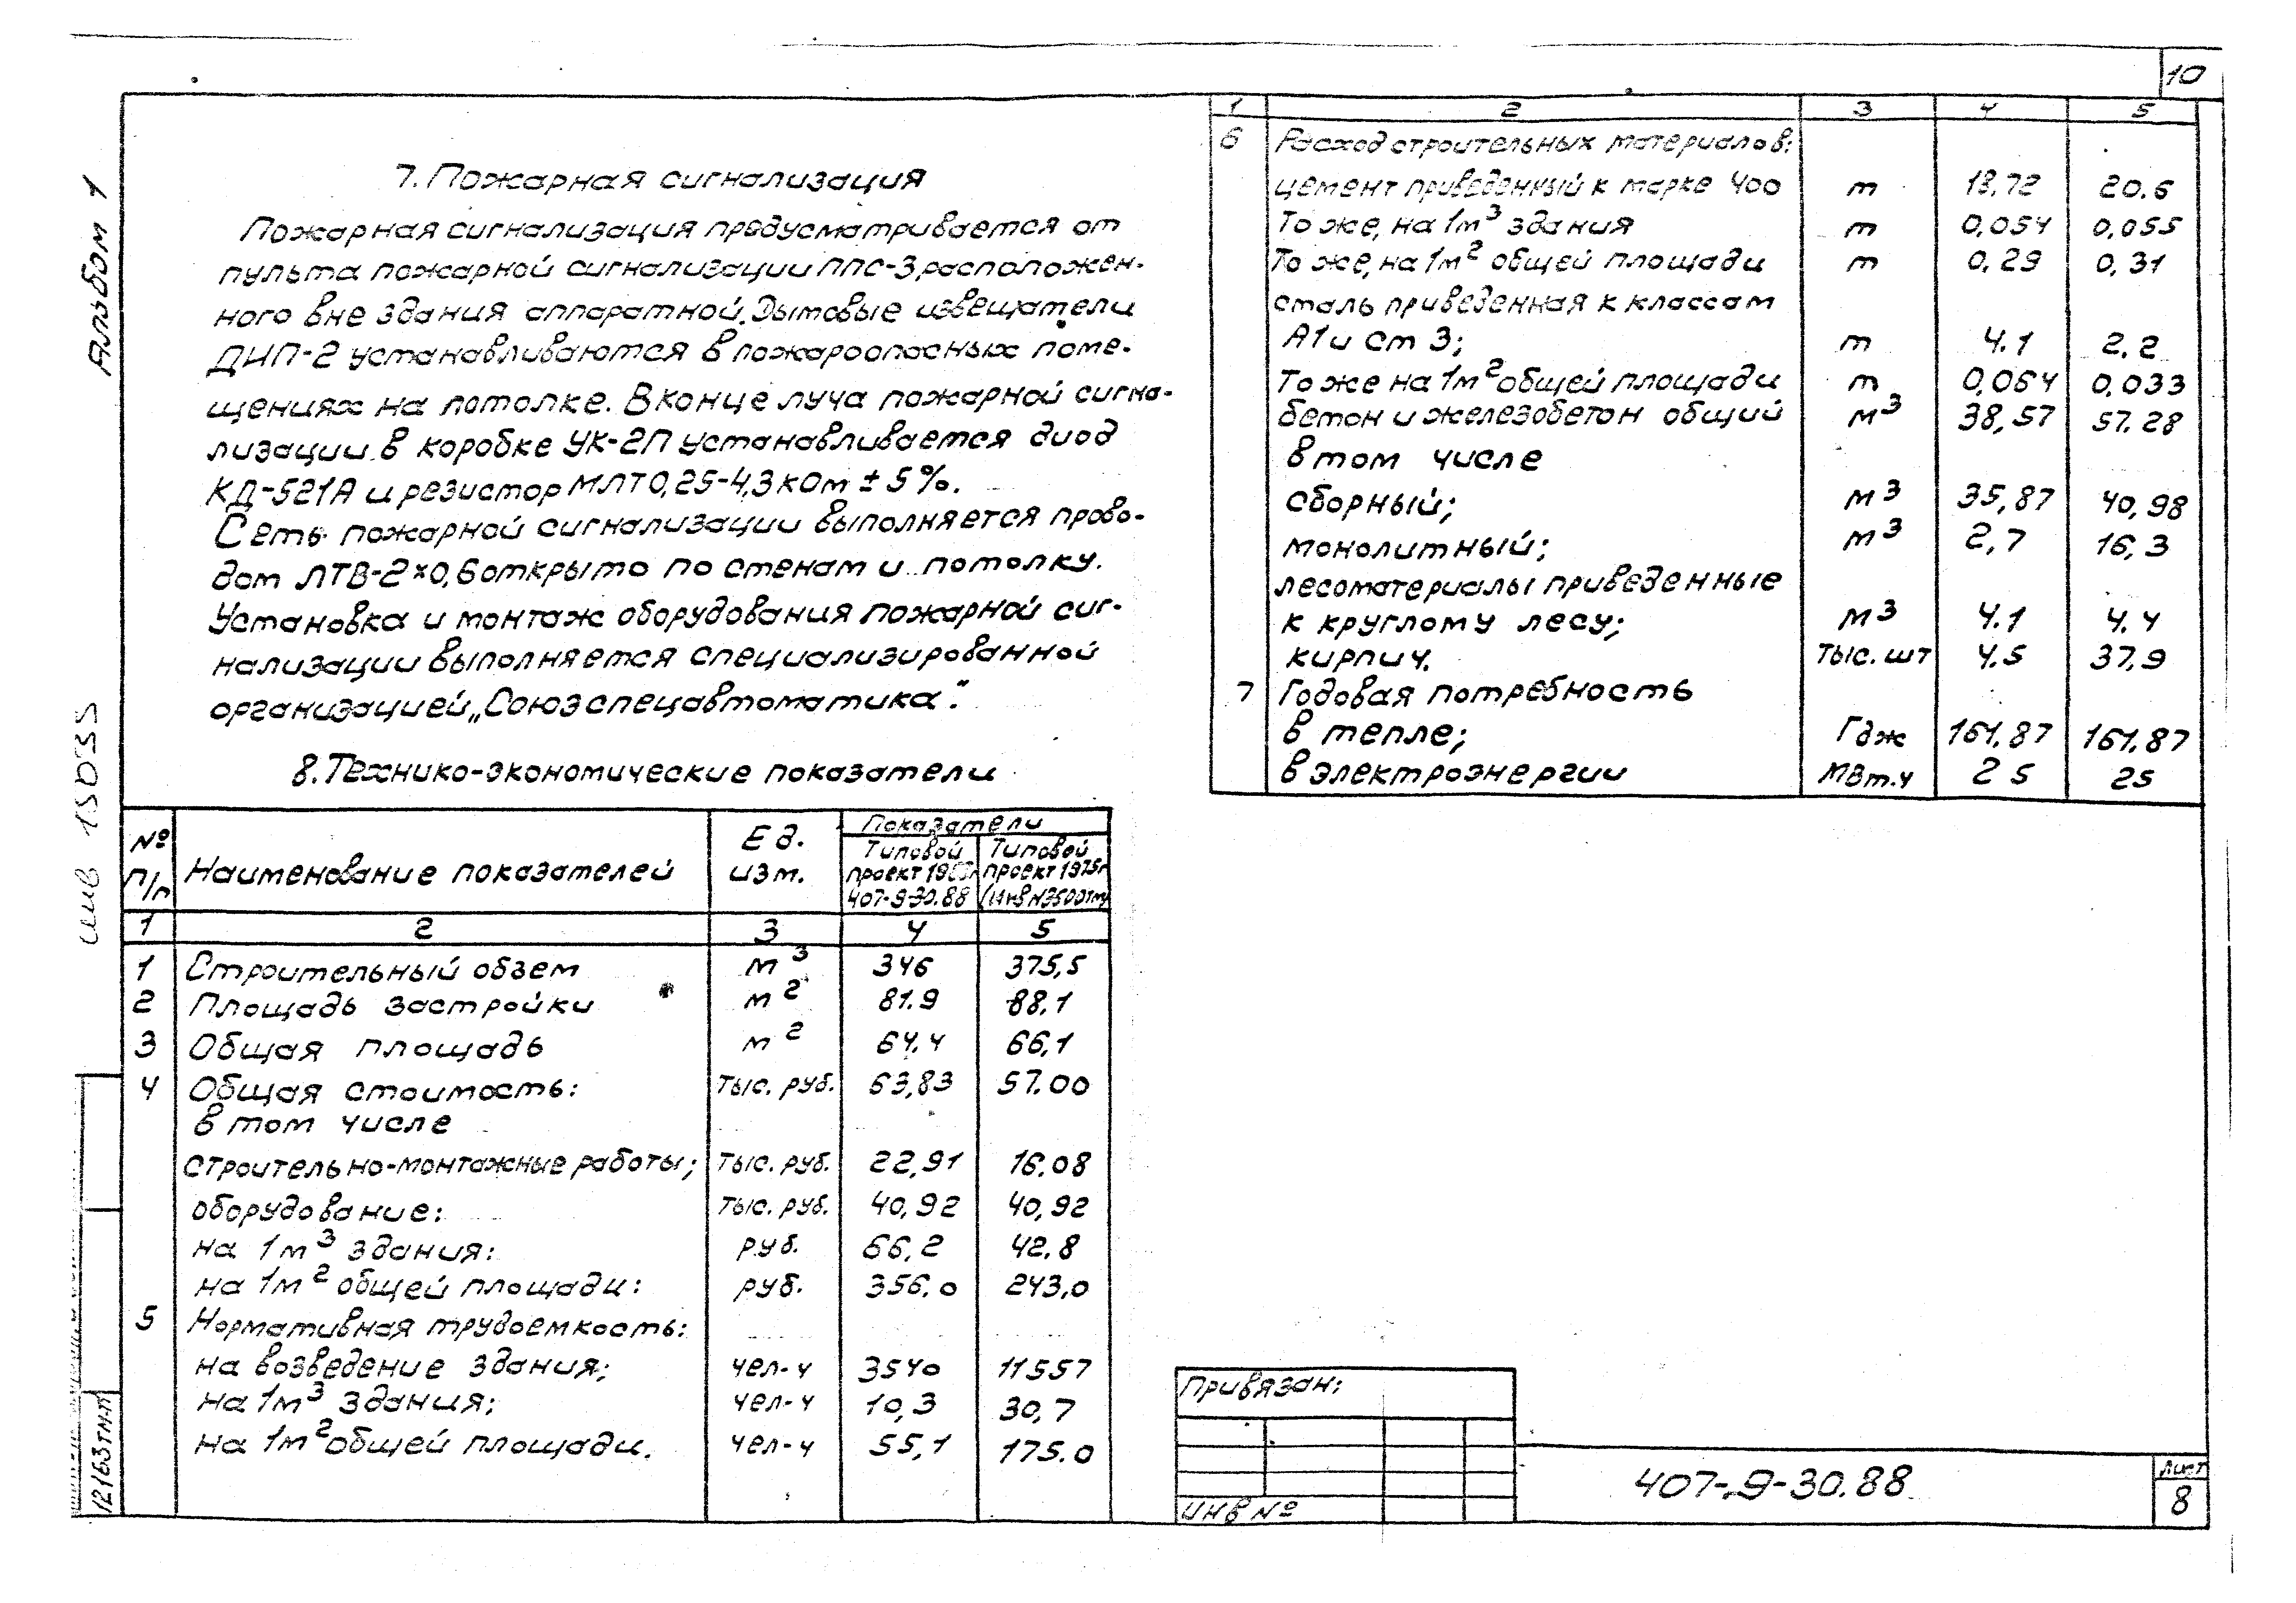 10
Альбом 1
7. Пожарная сигнализация
Пожарная сигнализация предусматривается от
пульта пожарной сигнализации ППС-3, расположен-
ного вне здания аппаратной. Дымовые извещатели
ДИП-2 устанавливаются в пожароопасных поме-
щениях на потолке. В конце луча пожарной сигна-
лизации в коробке УК-2П устанавливается диод
КД-521А и резистор МЛТ 0,25-4,3 кОм ± 5%.
Сеть пожарной сигнализации выполняется прово-
дом ЛТВ-2×0,6 открыто по стенам и потолку.
Установка и монтаж оборудования пожарной сиг-
нализации выполняется специализированной
организацией „Союзспецавтоматика".
8. Технико-экономические показатели
№ п/п | Наименование показателей | Ед. изм. | Показатели
Типовой проект 407-9-30.88 | Типовой проект 1975г
1 | 2 | 3 | 4 | 5
1 | Строительный обзем | м³ | 346 | 375,5
2 | Площадь застройки | м² | 81.9 | 88,1
3 | Общая площадь | м² | 64.4 | 66,1
4 | Общая стоимость: | тыс. руб. | 63,83 | 57.00
в том числе
строительно-монтажные работы; | тыс. руб. | 22,91 | 16.08
оборудование: | тыс. руб. | 40,92 | 40,92
на 1м³ здания: | руб. | 66,2 | 42,8
на 1м² общей площади: | руб. | 356,0 | 243,0
5 | Нормативная трудоемкость:
на возведение здания; | чел-ч | 3540 | 11557
на 1м³ здания; | чел-ч | 10,3 | 30,7
на 1м² общей площади. | чел-ч | 55,1 | 175.0
1 | 2 | 3 | 4 | 5
6 | Расход строительных материалов:
цемент приведенный к марке 400 | т | 18,72 | 20.6
То же, на 1м³ здания | т | 0,054 | 0,055
То же, на 1м² общей площади | т | 0,29 | 0,31
сталь приведенная к классам
А1 и Ст 3; | т | 4.1 | 2.2
То же на 1м² общей площади | т | 0,064 | 0,033
бетон и железобетон общий | м³ | 38,57 | 57.28
в том числе
сборный; | м³ | 35,87 | 40,98
монолитный; | м³ | 2,7 | 16,3
лесоматериалы приведенные
к круглому лесу; | м³ | 4.1 | 4.4
кирпич. | тыс. шт | 4.5 | 37,9
7 | Годовая потребность
в тепле; | Гдж | 161,87 | 161.87
в электроэнергии | МВт.ч | 25 | 25
инв 15035
12163тм-т1
Привязан:
ИНВ №
407-9-30.88
Лист
8